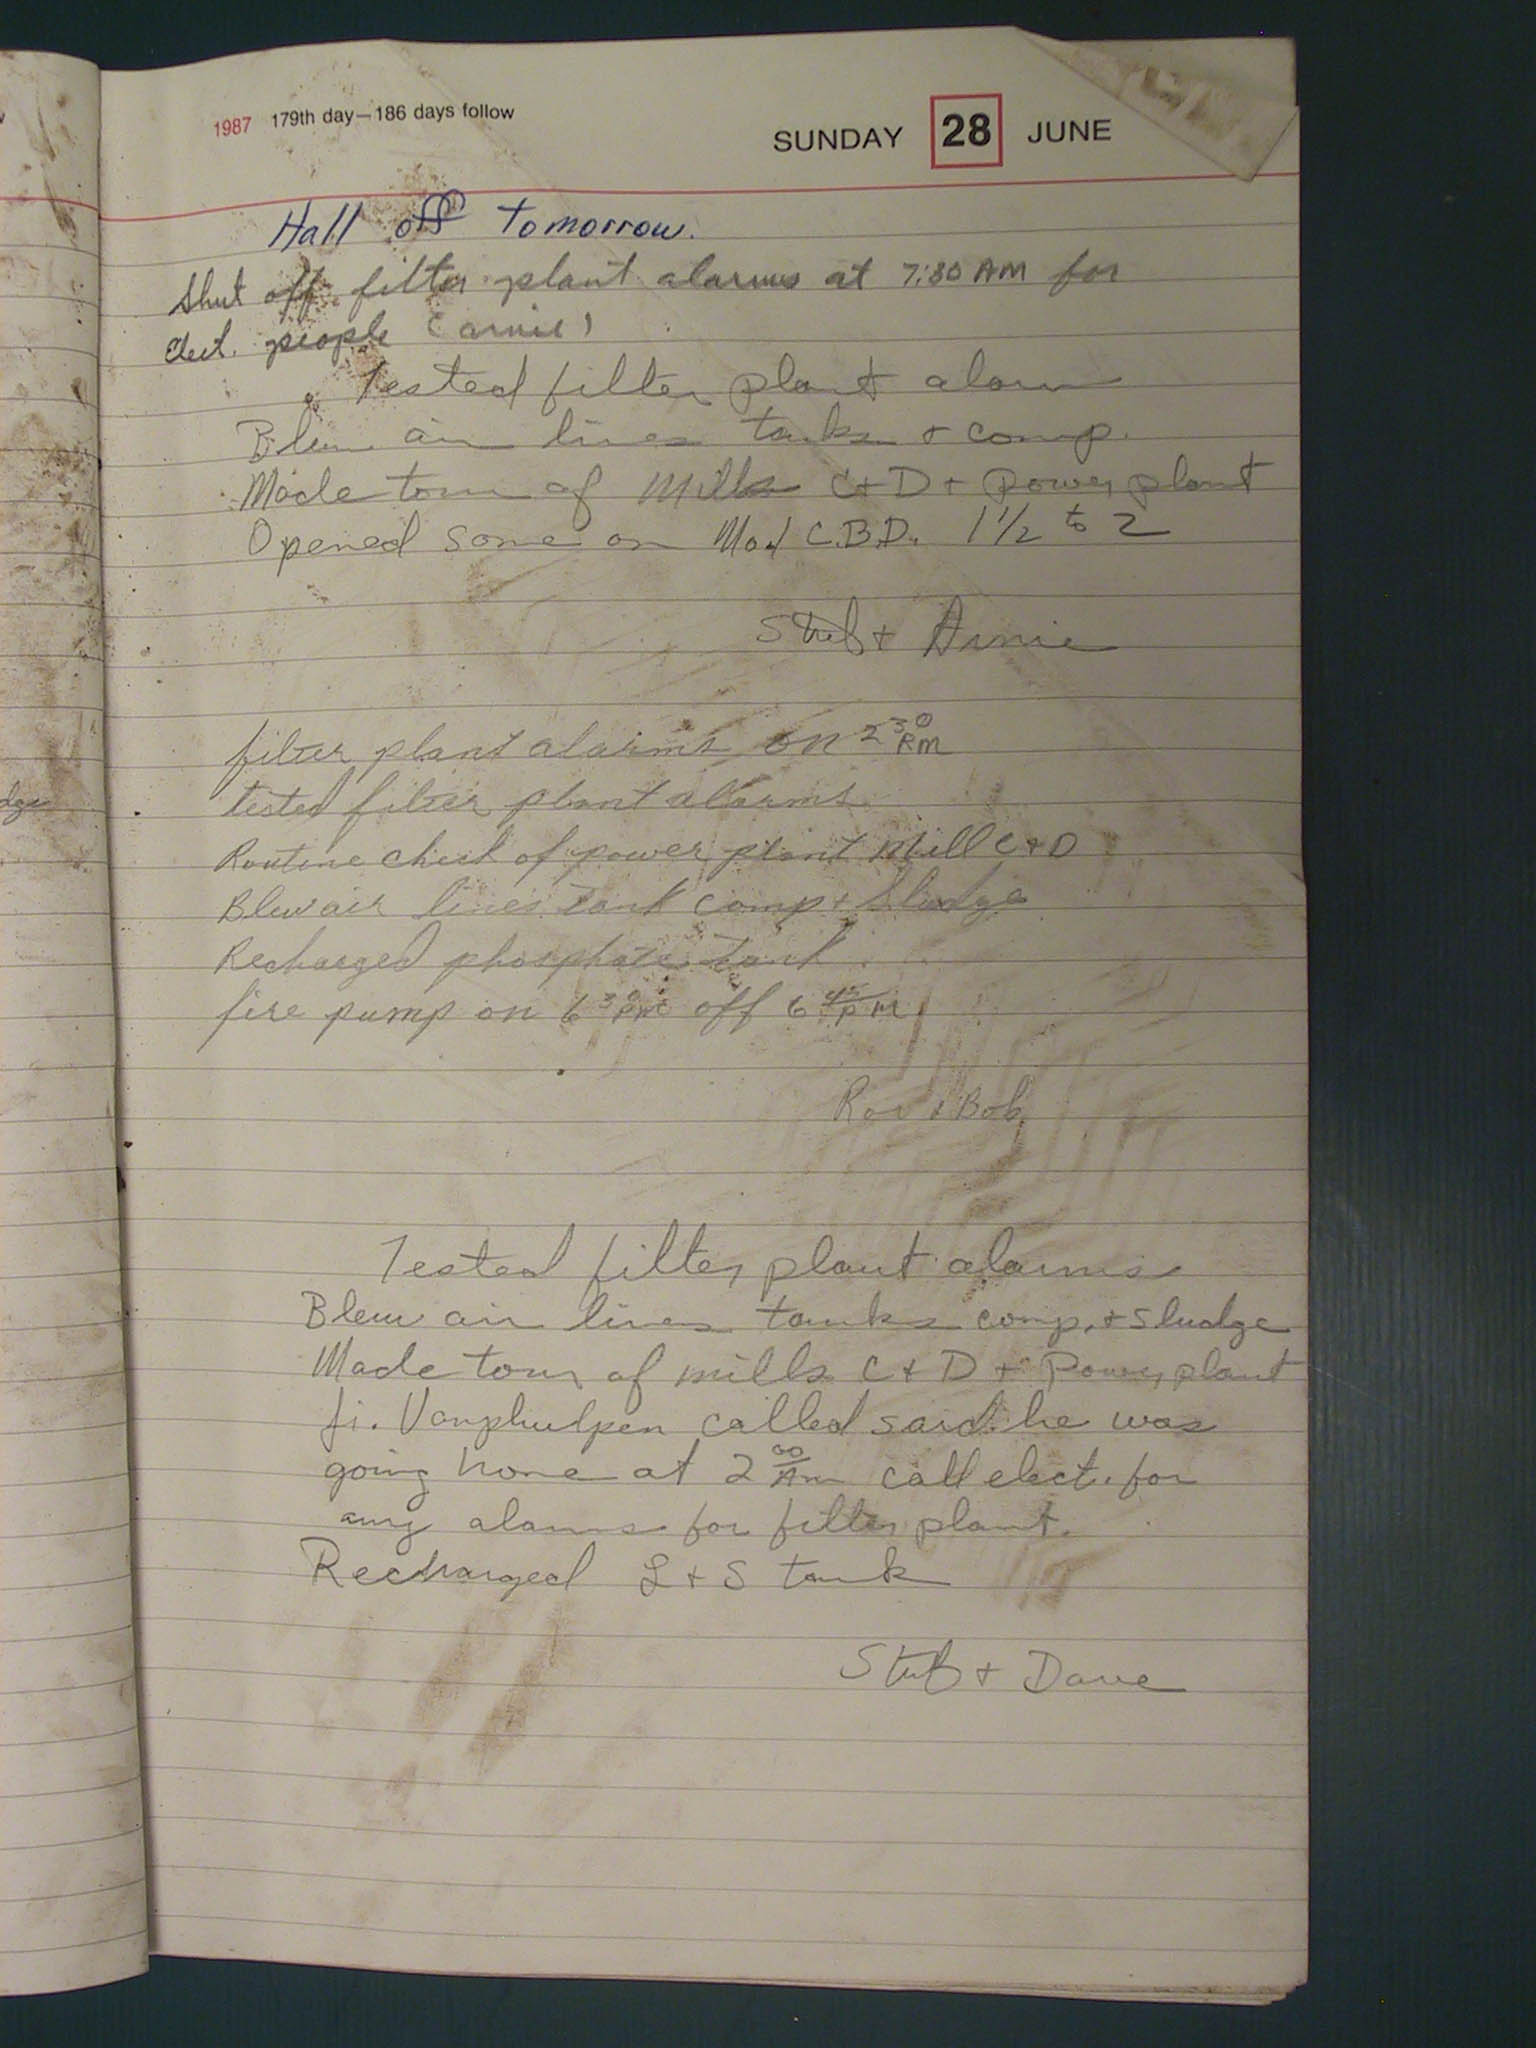 1987 179th day—186 days follow
SUNDAY 28 JUNE
Hall off tomorrow.
Shut off filter plant alarms at 7:30 AM for
elect. people (arnie)
Tested filter plant alarm
Blew air lines tanks + comp.
Made tour of Mills C+D + Power plant
Opened some on C.B.D. 1 1/2 to 2
Stub + Arnie
filter plant alarms on 2 30 PM
tested filter plant alarms
Routine check of power plant Mill C+D
Blew air lines tank comp + Sludge
Recharged phosphate tank.
fire pump on 6 30 PM off 6 45 PM
+ Bob
Tested filter plant alarms
Blew air lines tanks comp. + Sludge
Made tour of mills C + D + Power plant
Vanphulpen called said he was
going home at 2 00 Am call elect. for
any alarms for filter plant.
Recharged L + S tank
Stub + Dave